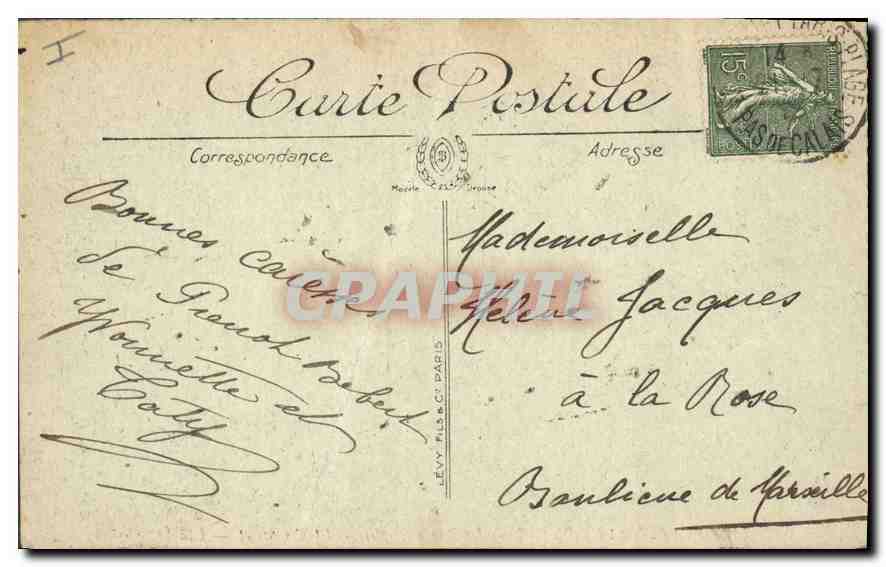 I
Carte Postale
Correspondance
Adresse
15c
REPUBLIQUE
PARIS-PLAGE
14
PAS DE CALAIS
Bonnes caresses
de Pierrot Bebert
Yvonnette et
LÉVY FILS & Cie PARIS
Mademoiselle
Hélène Jacques
à la Rose
Banlieue de Marseille
CPAPHIL